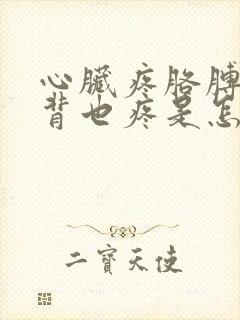 心臟疼胳膊
背也疼是怎
二寶天使